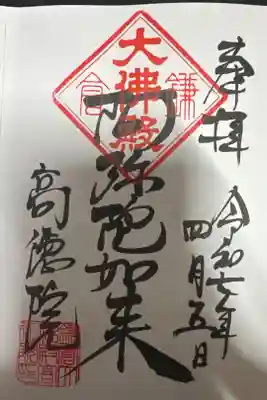 奉拝
令和七年
四月五日
鎌倉
大佛殿
阿弥陀如来
高徳院